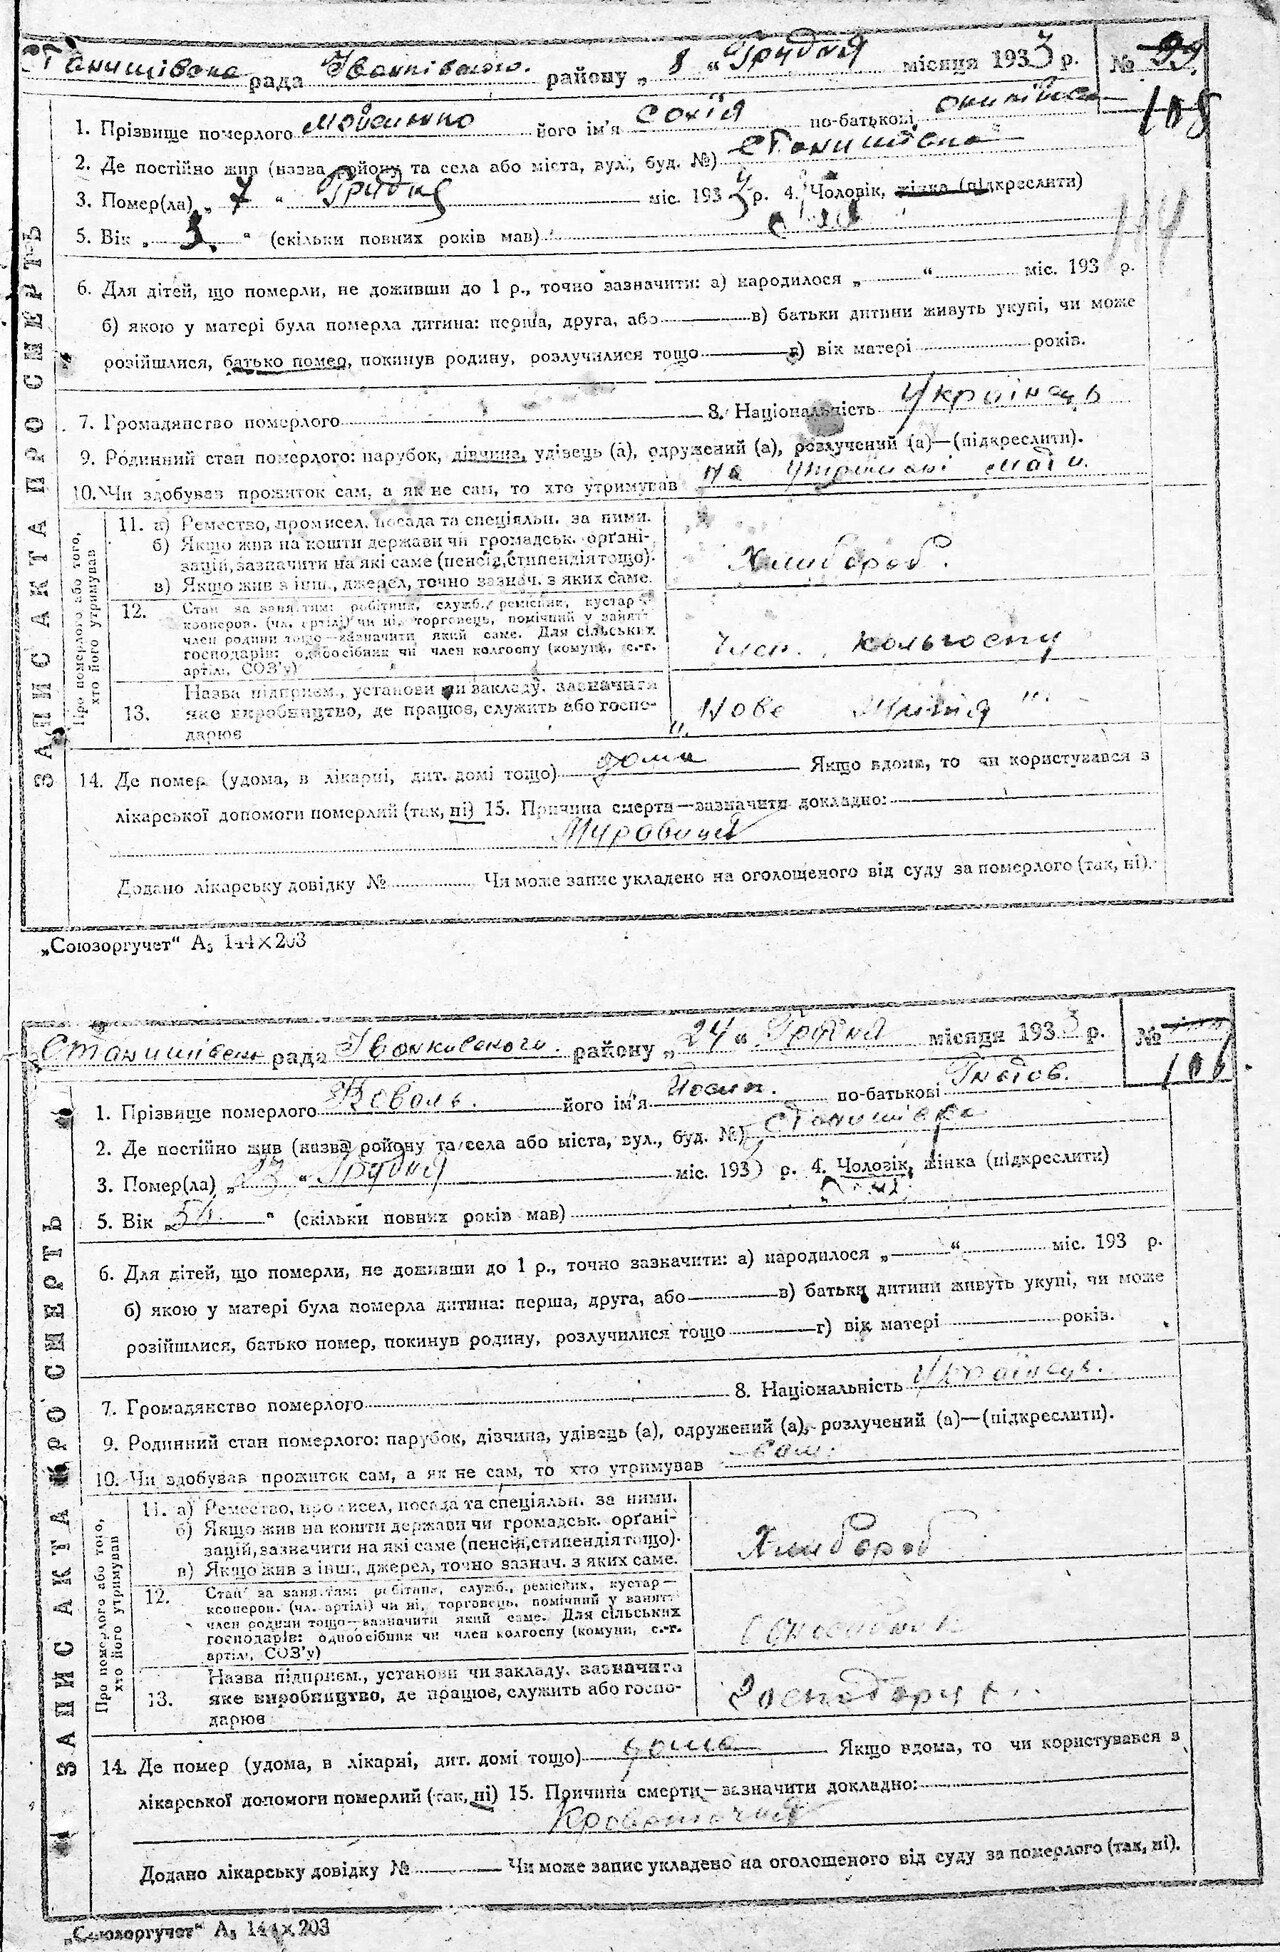 Станишівска рада Іванківського району „ 8 “ Грудня місяця 1933 р. № 99
108
1. Прізвище померлого Мойсиєнко його ім'я Софія по-батькові
2. Де постійно жив (назва району та села або міста, вул., буд. №) Станишівка
3. Помер(ла) „ 7 “ Грудня міс. 1933 р. 4. Чоловік, жінка (підкреслити)
5. Вік „ 3. “ (скільки повних років мав)
114
6. Для дітей, що померли, не доживши до 1 р., точно зазначити: а) народилося „ “ міс. 193 р.
б) якою у матері була померла дитина: перша, друга, або в) батьки дитини живуть укупі, чи може
розійшлися, батько помер, покинув родину, розлучилися тощо г) вік матері років.
7. Громадянство померлого 8. Національність Українець
9. Родинний стан померлого: парубок, дівчина, удівець (а), одружений (а), розлучений (а)—(підкреслити).
10. Чи здобував прожиток сам, а як не сам, то хто утримував на утриманні мати.
ЗАПИС АКТА ПРО СМЕРТЬ
Про померлого або того, хто його утримував
11. а) Ремество, промисел, посада та спеціяльн. за ними.
б) Якщо жив на кошти держави чи громадськ. орґані-
зацій, зазначити на які саме (пенсія, стипендія тощо).
в) Якщо жив з інш. джерел, точно зазнач. з яких саме.
Хлибороб.
12. Стан за заняттям: робітник, служб., ремісник, кустар—
кооперов. (чл. артілі) чи ні, торговець, помічний у занятт.
член родини тощо—зазначити який саме. Для сільських
господарів: одноосібник чи член колгоспу (комуни, с.-г.
артіл, СОЗ'у)
Член. кольгоспу
13. Назва підприєм., установи чи закладу, зазначити
яке виробництво, де працює, служить або госпо-
дарює
„Нове Життя“.
14. Де помер (удома, в лікарні, дит. домі тощо) дома Якщо вдома, то чи користувався з
лікарської допомоги померлий (так, ні) 15. Причина смерти—зазначити докладно:
Додано лікарську довідку № Чи може запис укладено на оголошеного від суду за померлого (так, ні).
„Союзоргучет“ А₅ 144×203
Станишівськ рада Іванковського району „ 24 “ Грудня місяця 1933 р. №
106.
1. Прізвище померлого Коваль. його ім'я Йосип. по-батькові Гнатов.
2. Де постійно жив (назва району та села або міста, вул., буд. №) Станишівка
3. Помер(ла) „ 23 “ Грудня міс. 193 р. 4. Чоловік, жінка (підкреслити)
5. Вік „ “ (скільки повних років мав)
6. Для дітей, що померли, не доживши до 1 р., точно зазначити: а) народилося „ “ міс. 193 р.
б) якою у матері була померла дитина: перша, друга, або в) батьки дитини живуть укупі, чи може
розійшлися, батько помер, покинув родину, розлучилися тощо г) вік матері років.
7. Громадянство померлого 8. Національність Українець.
9. Родинний стан померлого: парубок, дівчина, удівець (а), одружений (а), розлучений (а)—(підкреслити).
10. Чи здобував прожиток сам, а як не сам, то хто утримував сам.
ЗАПИС АКТА ПРО СМЕРТЬ
Про померлого або того, хто його утримував
11. а) Ремество, промисел, посада та спеціяльн. за ними.
б) Якщо жив на кошти держави чи громадськ. орґані-
зацій, зазначити на які саме (пенсія, стипендія тощо).
в) Якщо жив з інш. джерел, точно зазнач. з яких саме.
Хлибороб
12. Стан за заняттям: робітник, служб., ремісник, кустар—
кооперов. (чл. артілі) чи ні, торговець, помічний у занятт.
член родини тощо—зазначити який саме. Для сільських
господарів: одноосібник чи член колгоспу (комуни, с.-г.
артіл, СОЗ'у)
Одноосібник
13. Назва підприєм., установи чи закладу, зазначити
яке виробництво, де працює, служить або госпо-
дарює
Господарує.
14. Де помер (удома, в лікарні, дит. домі тощо) дома Якщо вдома, то чи користувався з
лікарської допомоги померлий (так, ні) 15. Причина смерти—зазначити докладно:
Додано лікарську довідку № Чи може запис укладено на оголошеного від суду за померлого (так, ні).
„Союзоргучет“ А₅ 144×203